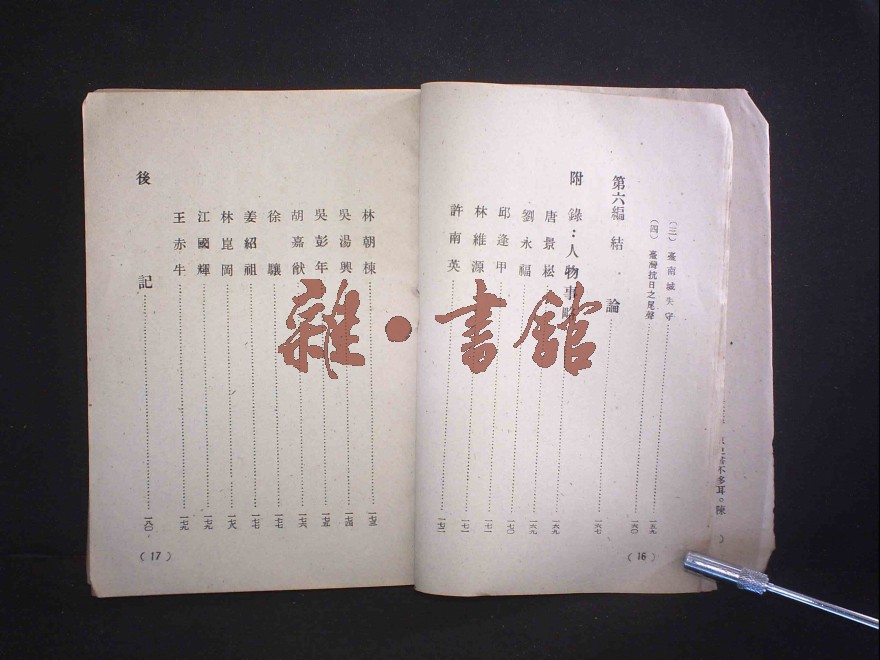 (三) 臺南城失守……一五九
(四) 臺灣抗日之尾聲……一六〇
第六編 結 論……一六七
附 錄：人物事略
唐景崧……一六九
劉永福……一六九
邱逢甲……一七〇
林維源……一七一
許南英……一七二
(16)
林朝棟……一七三
吳湯興……一七四
吳彭年……一七五
胡嘉猷……一七六
徐 驤……一七七
姜紹祖……一七七
林崑岡……一七八
江國輝……一七九
王赤牛……一七九
後 記……一八〇
(17)
不多耳。陳
雜·書館